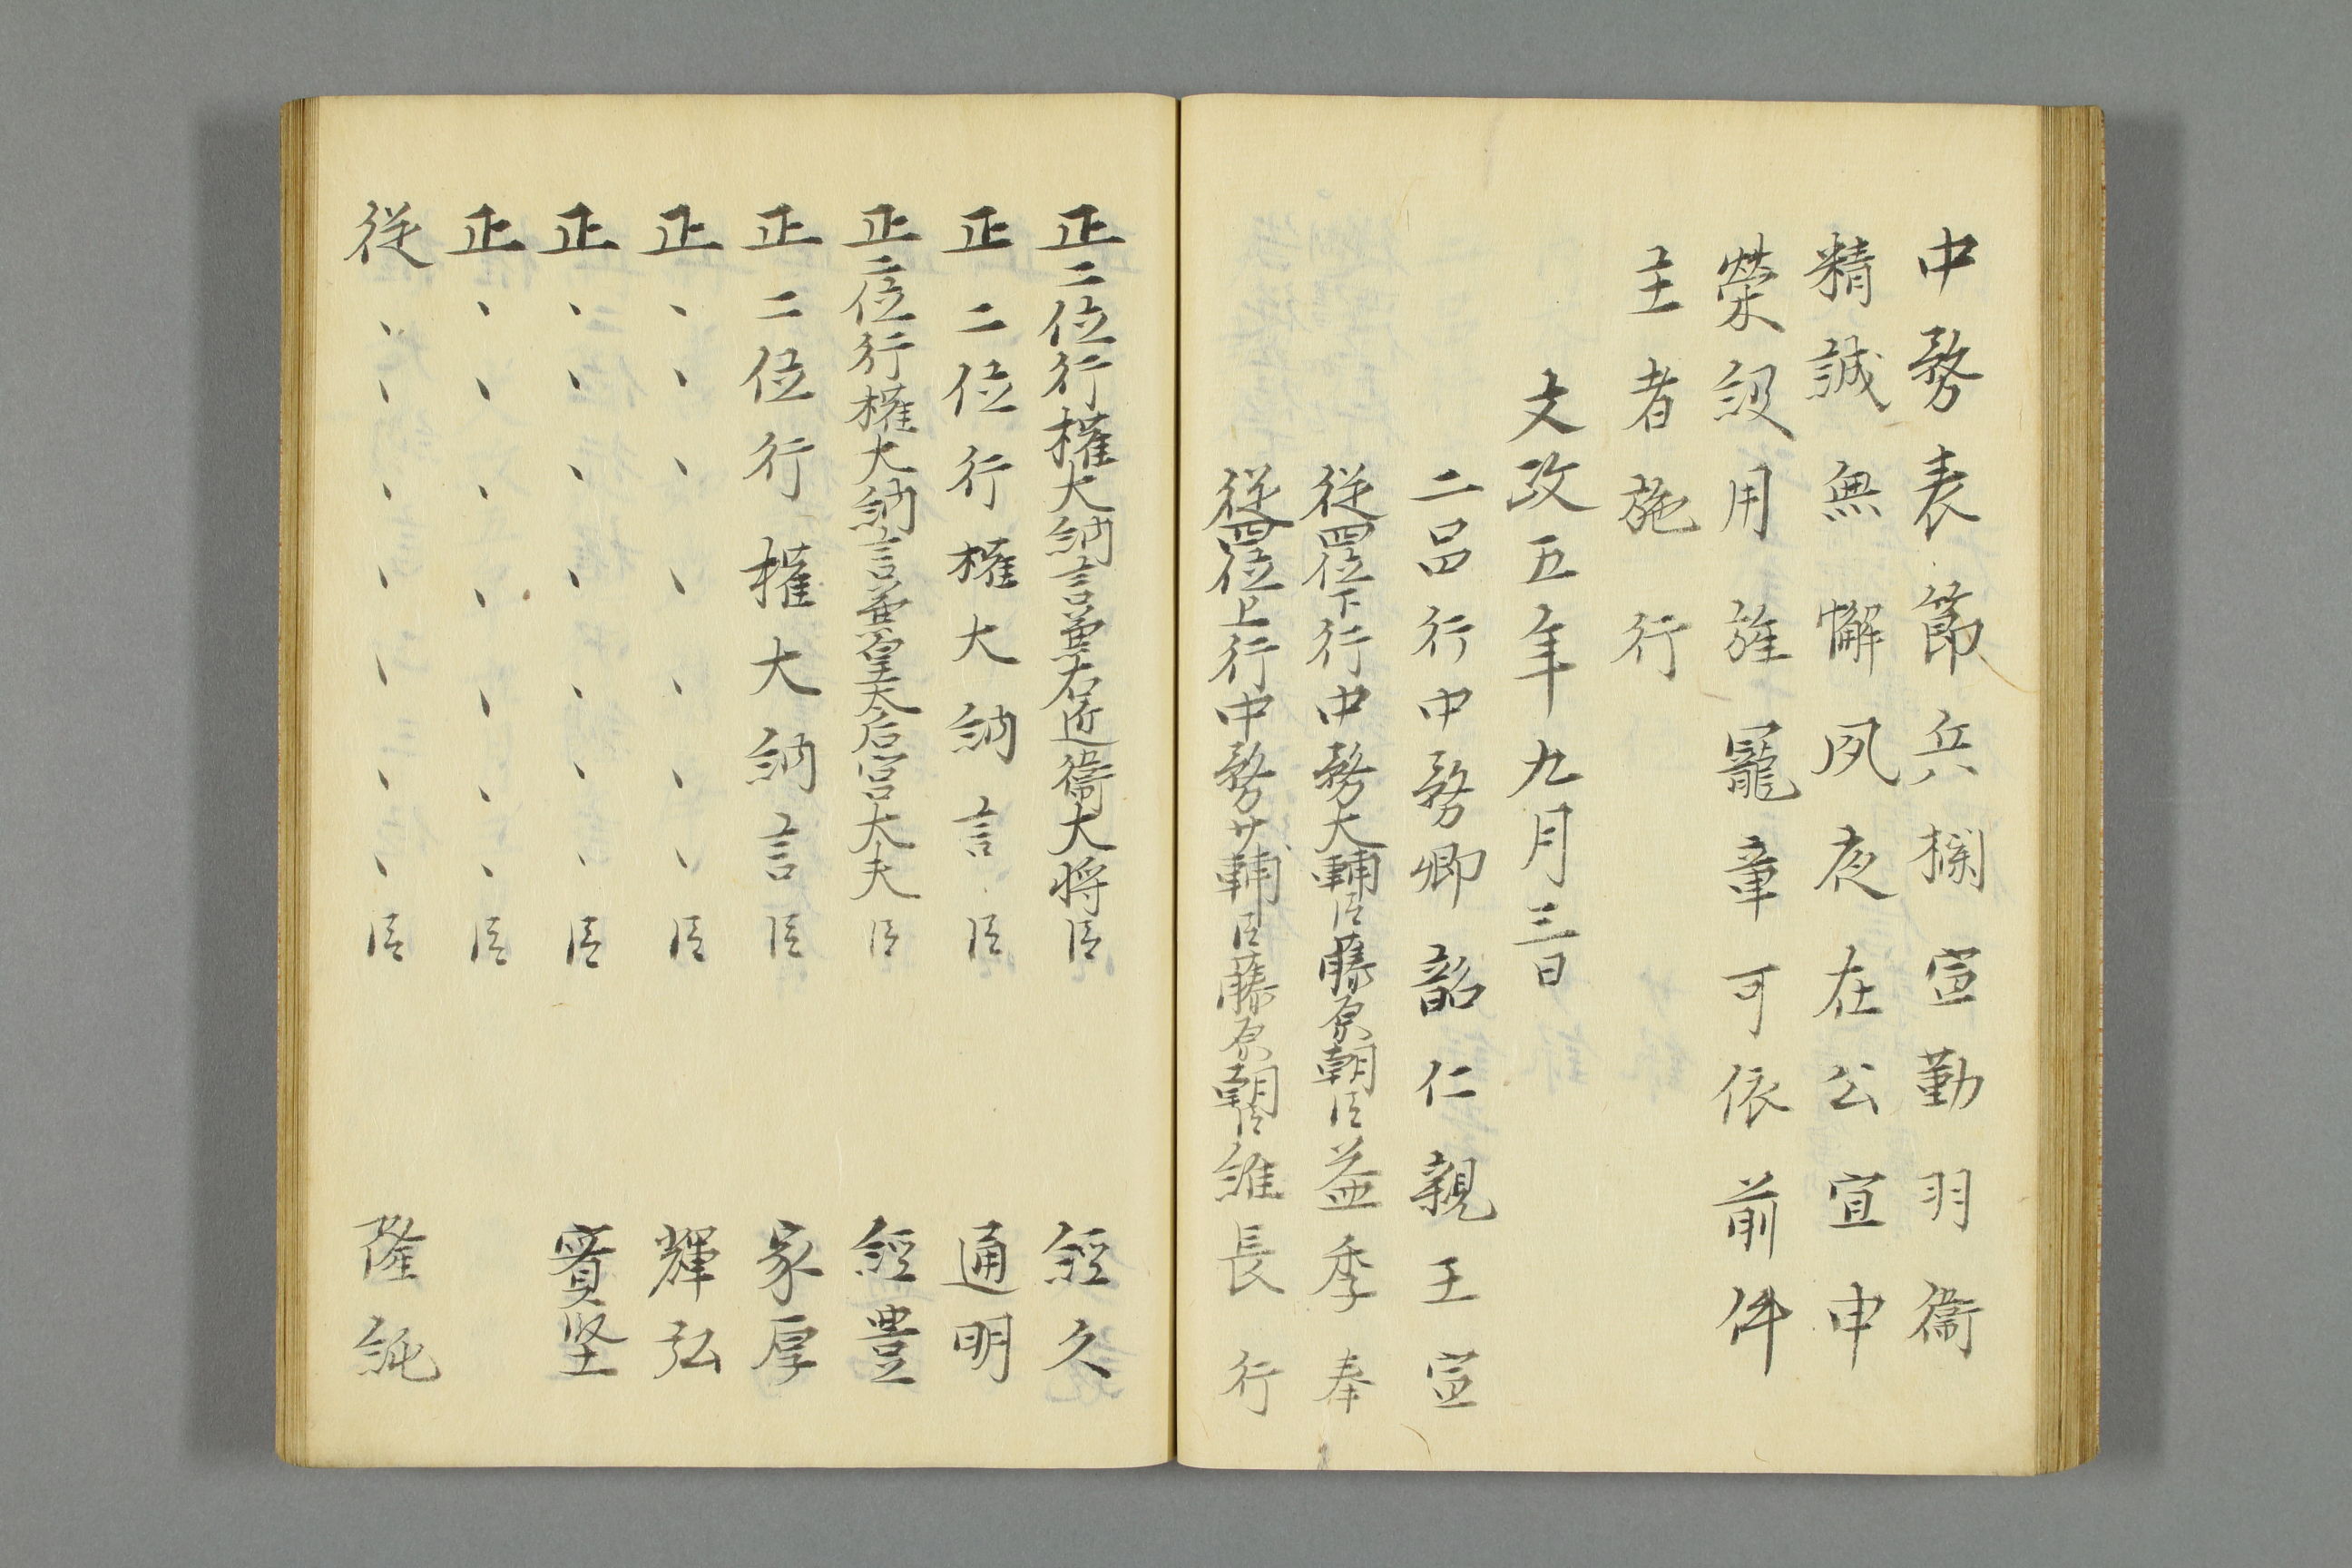 中務表節兵欄宣勤羽衛
精誠無懈夙夜在公宜申
榮級用旌寵章可依前件
主者施行
文政五年九月三日
二品行中務卿韶仁親王宣
従四位下行中務大輔臣藤原朝臣益季奉
従四位上行中務少輔臣藤原朝臣維長行
正二位行権大納言兼右近衛大将臣 経久
正二位行権大納言臣 通明
正二位行権大納言兼皇太后宮大夫臣 経豊
正二位行権大納言臣 家厚
正、、、、、、臣 輝弘
正、、、、、、臣 資堅
正、、、、、、臣
従、、、、、、、臣 隆純